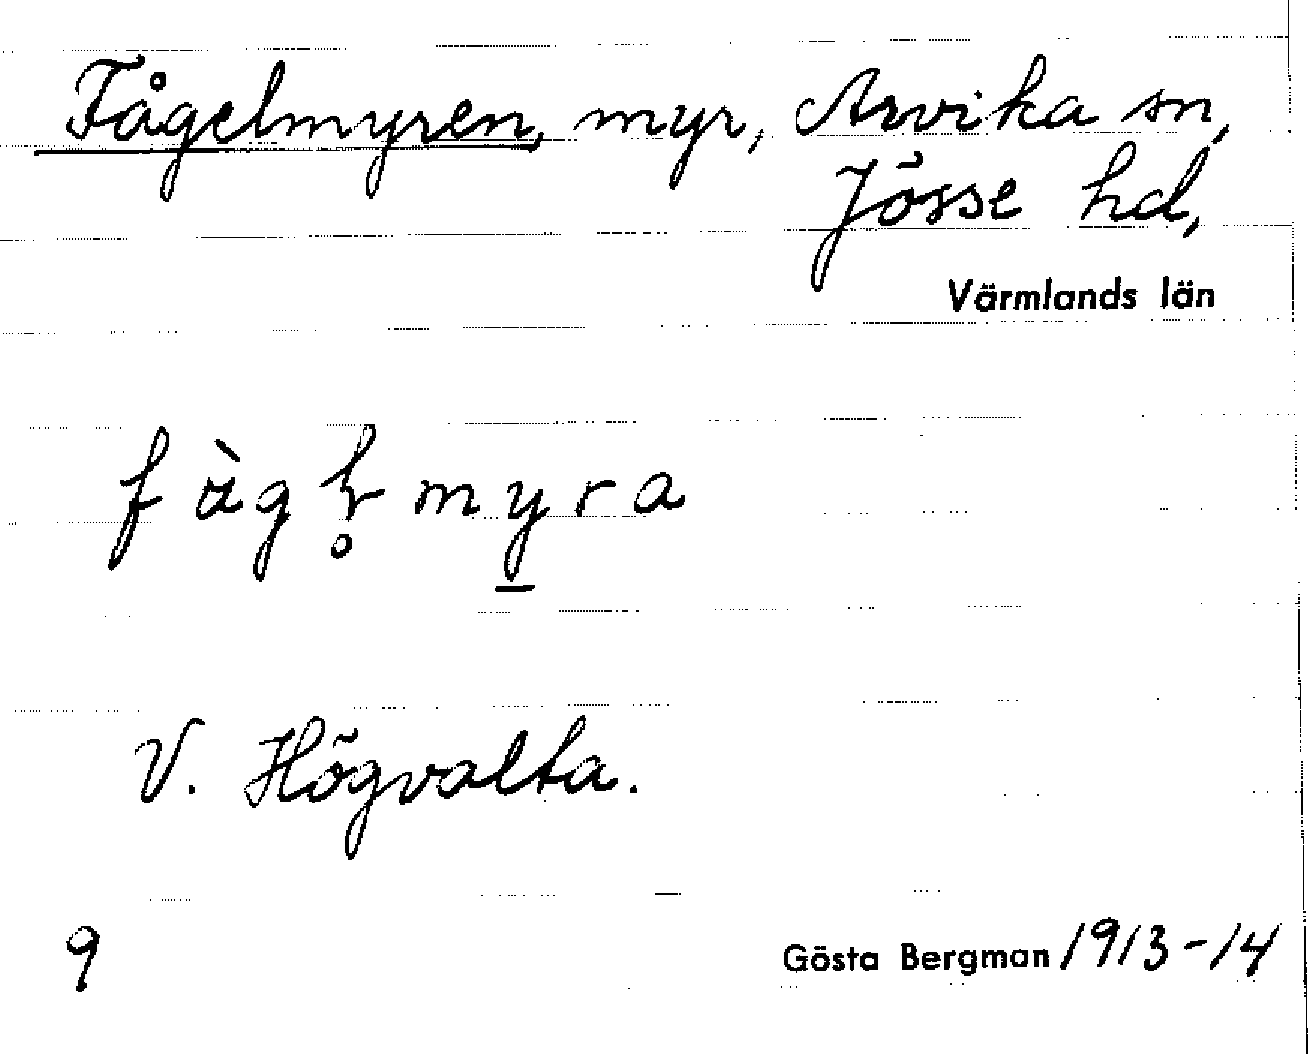 Fågelmyren, myr, Arvika sn,
Jösse hd,
Värmlands län
V. Högvalta.
9
Gösta Bergman 1913-14